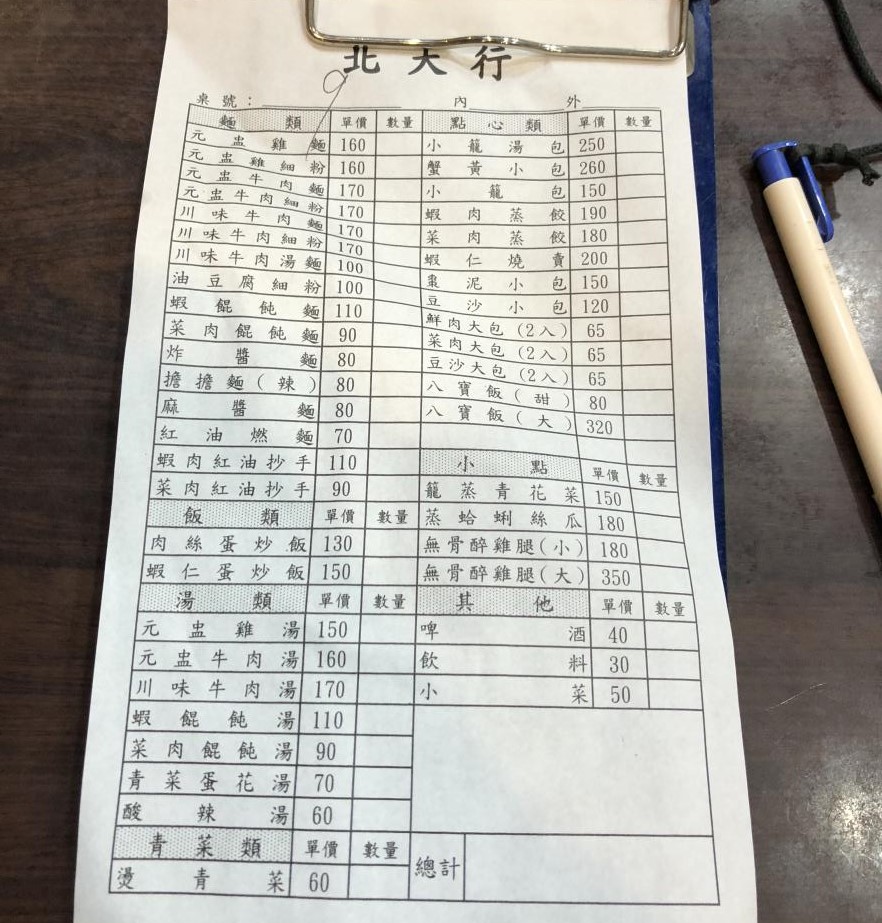 北大行
桌號： 內 外
麵類 單價 數量
元盅雞麵 160
元盅雞細粉 160
元盅牛肉麵 170
元盅牛肉細粉 170
川味牛肉麵 170
川味牛肉細粉 170
川味牛肉湯麵 100
油豆腐細粉 100
蝦餛飩麵 110
菜肉餛飩麵 90
炸醬麵 80
擔擔麵(辣) 80
麻醬麵 80
紅油燃麵 70
蝦肉紅油抄手 110
菜肉紅油抄手 90
飯類 單價 數量
肉絲蛋炒飯 130
蝦仁蛋炒飯 150
湯類 單價 數量
元盅雞湯 150
元盅牛肉湯 160
川味牛肉湯 170
蝦餛飩湯 110
菜肉餛飩湯 90
青菜蛋花湯 70
酸辣湯 60
青菜類 單價 數量
燙青菜 60
點心類 單價 數量
小籠湯包 250
蟹黃小包 260
小籠包 150
蝦肉蒸餃 190
菜肉蒸餃 180
蝦仁燒賣 200
棗泥小包 150
豆沙小包 120
鮮肉大包(2入) 65
菜肉大包(2入) 65
豆沙大包(2入) 65
八寶飯(甜) 80
八寶飯(大) 320
小點 單價 數量
籠蒸青花菜 150
蒸蛤蜊絲瓜 180
無骨醉雞腿(小) 180
無骨醉雞腿(大) 350
其他 單價 數量
啤酒 40
飲料 30
小菜 50
總計